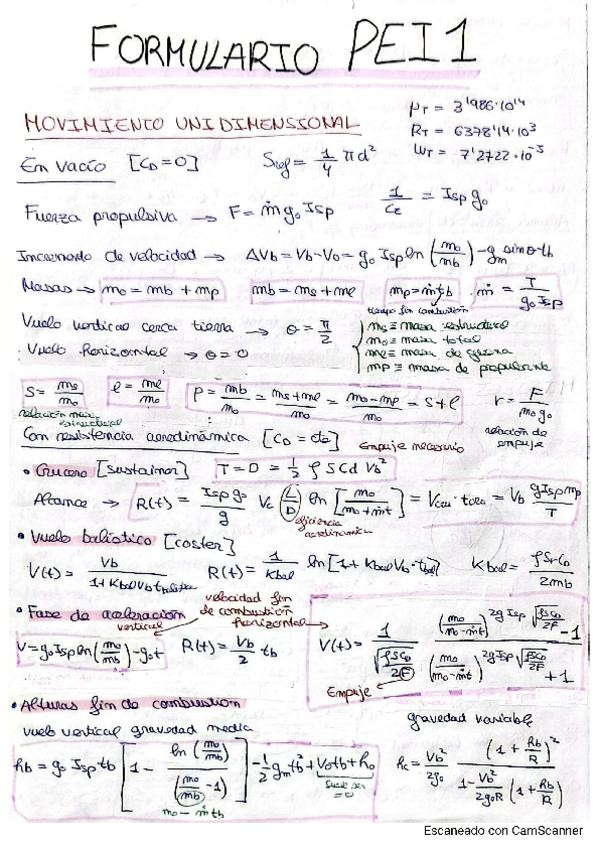 FORMULARIO PEI 1
MOVIMIENTO UNIDIMENSIONAL
μT = 3'986·10^14
RT = 6378'14·10^3
ωT = 7'2722·10^-5
En vacío [CD=0] Sref = 1/4 π d²
Fuerza propulsiva → F = ṁ g₀ Isp 1/CE = Isp g₀
Incremento de velocidad → ΔVb = Vb - V₀ = g₀ Isp ln (m₀/mb) - gm sinθ tb
Masas → m₀ = mb + mp mb = ms + mℓ mp = ṁ tb ṁ = T/(g₀ Isp)
tiempo fin combustión
Vuelo vertical cerca tierra → θ = π/2
Vuelo horizontal → θ = 0
ms ≡ masa estructural
m₀ ≡ masa total
mℓ ≡ masa de
mp ≡ masa de propulsante
s = ms/m₀ ℓ = mℓ/m₀ p = mb/m₀ = (ms+mℓ)/m₀ = (m₀-mp)/m₀ = s+ℓ r = F/(m₀ g₀)
relación masa estructural
relación de empuje
Con resistencia aerodinámica [CD = cte] Empuje necesario
• Crucero [sustainer] T = D = 1/2 ρ S Cd Vb²
Alcance → R(t) = (Isp g₀/g) Vc (L/D) ln [m₀/(m₀+ṁt)] = Vcru · tcru = Vb (g Isp mp)/T
eficiencia aerodinámica
• Vuelo balístico [coster]
V(t) = Vb/(1 + Kbal Vb tbalística) R(t) = 1/Kbal ln [1 + Kbal Vb · tbal] Kbal = (ρ Sr CD)/(2mb)
• Fase de aceleración
velocidad fin de combustión
vertical
horizontal
V = g₀ Isp ln (m₀/mb) - g₀ t R(t) = Vb/2 tb V(t) = 1/√(ρSCD/2F) · ((m₀/(m₀-ṁt))^(2g Isp √(ρSCD/2F)) - 1)/((m₀/(m₀-ṁt))^(2g Isp √(ρSCD/2F)) + 1)
Empuje
• Alturas fin de combustión
vuelo vertical gravedad media
gravedad variable
hb = g₀ Isp tb [1 - ln(m₀/mb)/(m₀/mb - 1)] - 1/2 gm tb² + V₀ tb + h₀
m₀ - ṁ tb
suele ser = 0
hc = Vb²/2g₀ (1 + hb/R)²/(1 - Vb²/(2g₀R) (1 + hb/R))
Escaneado con CamScanner